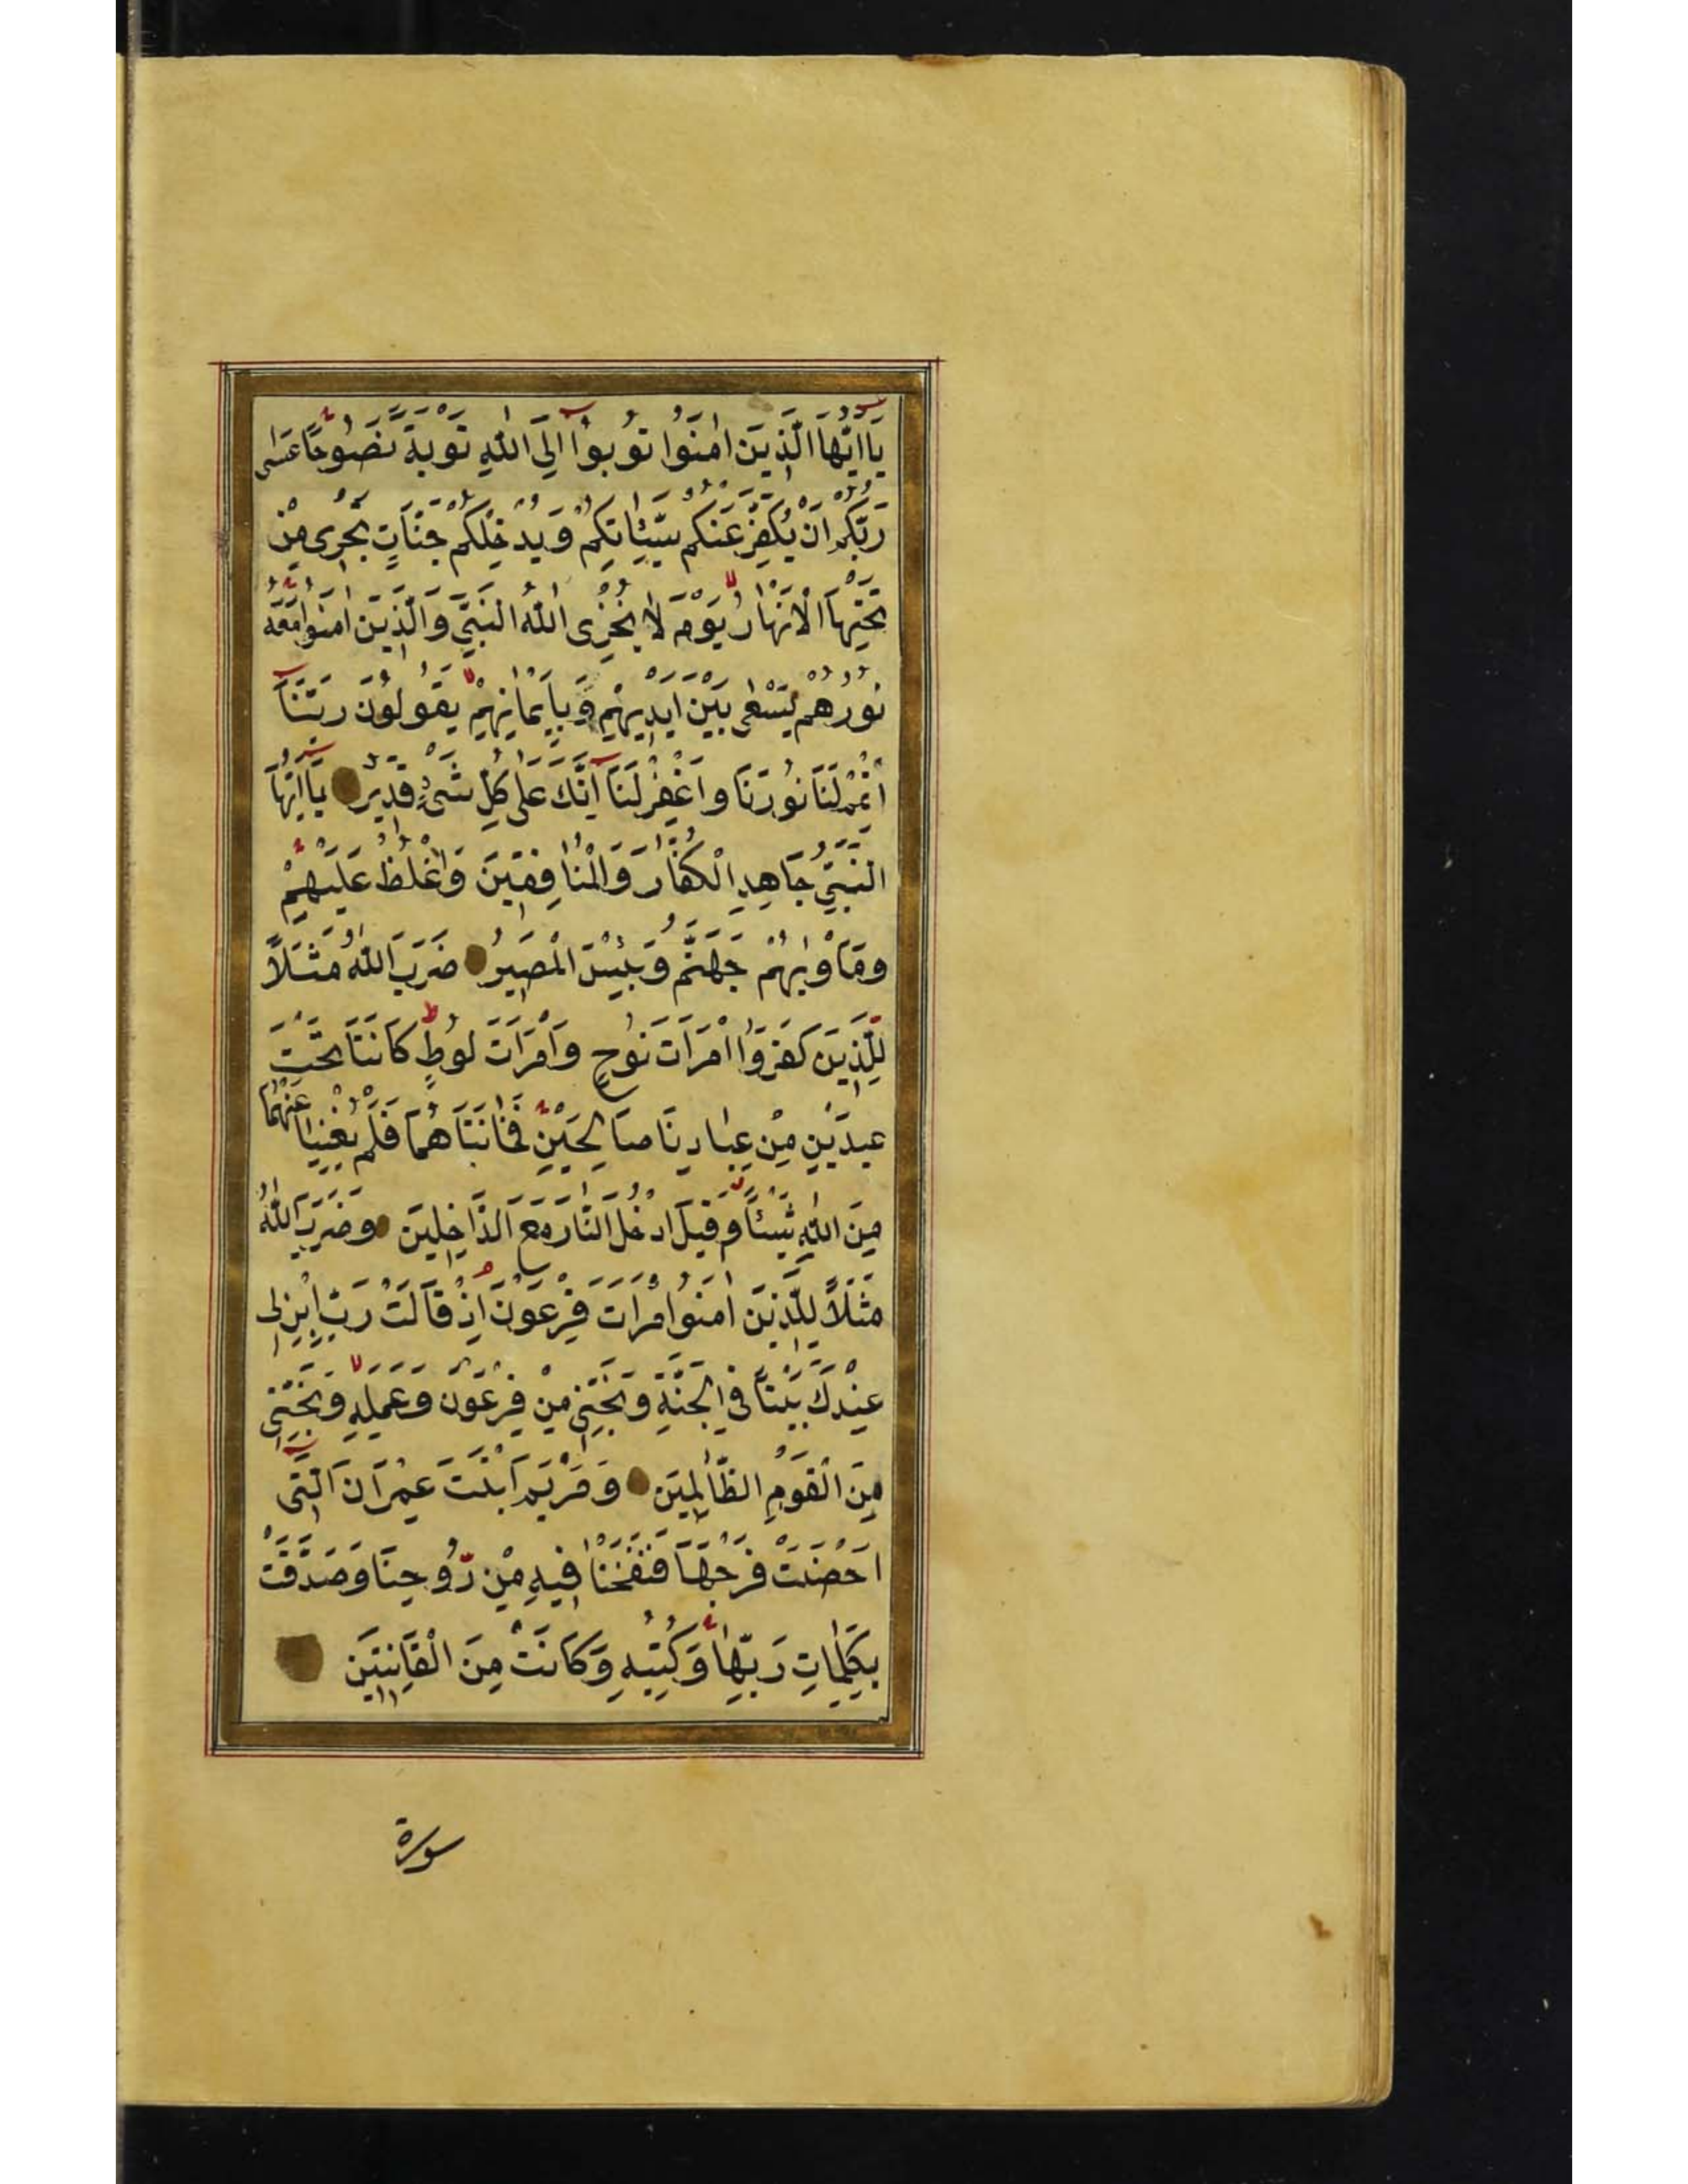 يَا اَيُّهَا الَّذِينَ اٰمَنُوا تُوبُوا اِلَى اللّٰهِ تَوْبَةً نَصُوحًا عَسٰى
رَبُّكُمْ اَنْ يُكَفِّرَ عَنْكُمْ سَيِّئَاتِكُمْ وَيُدْخِلَكُمْ جَنَّاتٍ تَجْرِى مِنْ
تَحْتِهَا الْاَنْهَارُ يَوْمَ لَا يُخْزِى اللّٰهُ النَّبِيَّ وَالَّذِينَ اٰمَنُوا مَعَهُ
نُورُهُمْ يَسْعٰى بَيْنَ اَيْدِيهِمْ وَبِاَيْمَانِهِمْ يَقُولُونَ رَبَّنَا
اَتْمِمْ لَنَا نُورَنَا وَاغْفِرْ لَنَا اِنَّكَ عَلٰى كُلِّ شَىْءٍ قَدِيرٌ يَا اَيُّهَا
النَّبِيُّ جَاهِدِ الْكُفَّارَ وَالْمُنَافِقِينَ وَاغْلُظْ عَلَيْهِمْ
وَمَاْوٰيهُمْ جَهَنَّمُ وَبِئْسَ الْمَصِيرُ ضَرَبَ اللّٰهُ مَثَلًا
لِلَّذِينَ كَفَرُوا امْرَاَتَ نُوحٍ وَامْرَاَتَ لُوطٍ كَانَتَا تَحْتَ
عَبْدَيْنِ مِنْ عِبَادِنَا صَالِحَيْنِ فَخَانَتَاهُمَا فَلَمْ يُغْنِيَا عَنْهُمَا
مِنَ اللّٰهِ شَيْئًا وَقِيلَ ادْخُلَا النَّارَ مَعَ الدَّاخِلِينَ وَضَرَبَ اللّٰهُ
مَثَلًا لِلَّذِينَ اٰمَنُوا امْرَاَتَ فِرْعَوْنَ اِذْ قَالَتْ رَبِّ ابْنِ لِى
عِنْدَكَ بَيْتًا فِى الْجَنَّةِ وَنَجِّنِى مِنْ فِرْعَوْنَ وَعَمَلِهِ وَنَجِّنِى
مِنَ الْقَوْمِ الظَّالِمِينَ وَمَرْيَمَ ابْنَتَ عِمْرَانَ الَّتِى
اَحْصَنَتْ فَرْجَهَا فَنَفَخْنَا فِيهِ مِنْ رُوحِنَا وَصَدَّقَتْ
بِكَلِمَاتِ رَبِّهَا وَكُتُبِهِ وَكَانَتْ مِنَ الْقَانِتِينَ
سورة